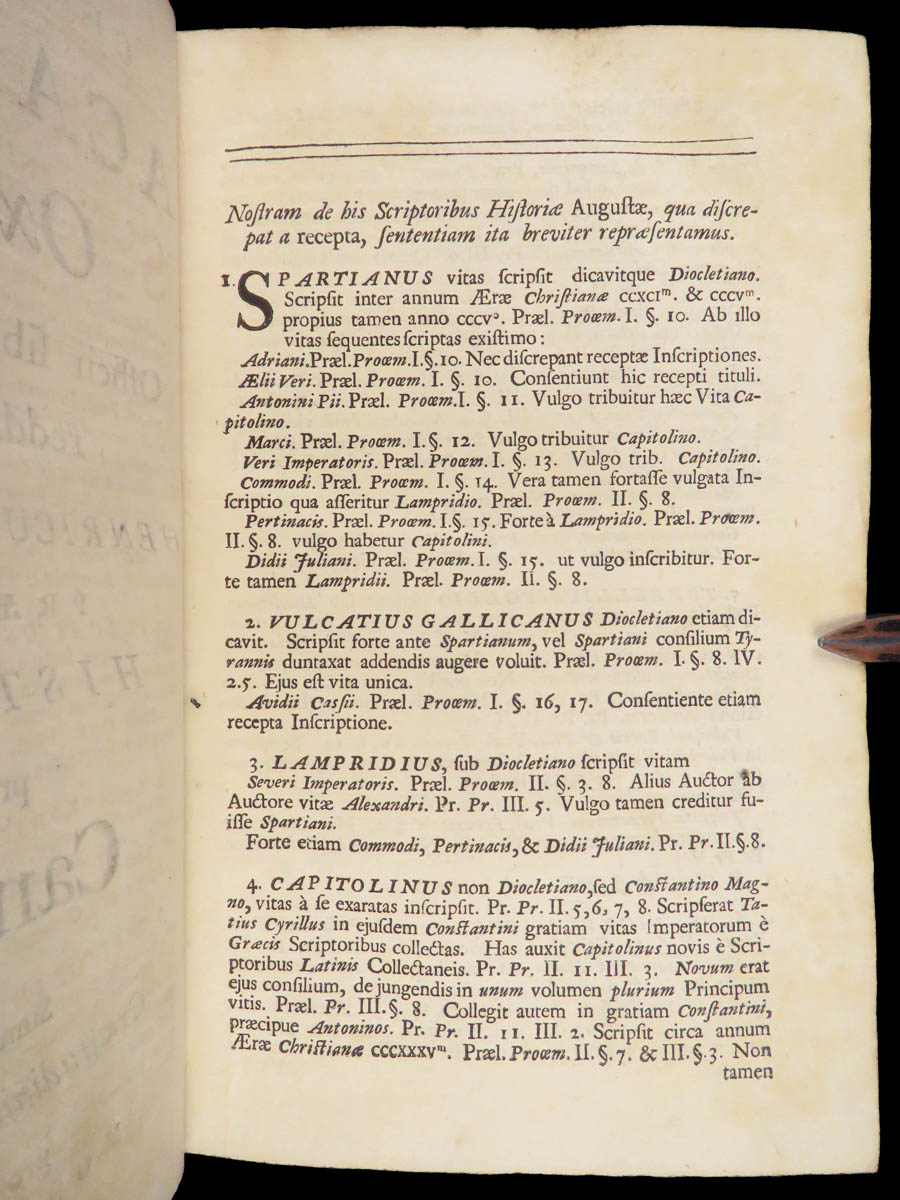 Noſtram de his Scriptoribus Hiſtoriæ Auguſtæ, qua diſcre-
pat a recepta, ſententiam ita breviter repræſentamus.
1. SPARTIANUS vitas ſcripſit dicavitque Diocletiano.
Scripſit inter annum Æræ Chriſtianæ CCXCIᵐ. & CCCVᵐ.
propius tamen anno CCCVᵒ. Præl. Proœm. I. §. 10. Ab illo
vitas ſequentes ſcriptas exiſtimo:
Adriani. Præl. Proœm. I. §. 10. Nec diſcrepant receptæ Inſcriptiones.
Ælii Veri. Præl. Proœm. I. §. 10. Conſentiunt hic recepti tituli.
Antonini Pii. Præl. Proœm. I. §. 11. Vulgo tribuitur hæc Vita Ca-
pitolino.
Marci. Præl. Proœm. I. §. 12. Vulgo tribuitur Capitolino.
Veri Imperatoris. Præl. Proœm. I. §. 13. Vulgo trib. Capitolino.
Commodi. Præl. Proœm. I. §. 14. Vera tamen fortaſſe vulgata In-
ſcriptio qua aſſeritur Lampridio. Præl. Proœm. II. §. 8.
Pertinacis. Præl. Proœm. I. §. 15. Forte à Lampridio. Præl. Proœm.
II. §. 8. vulgo habetur Capitolini.
Didii Juliani. Præl. Proœm. I. §. 15. ut vulgo inſcribitur. For-
te tamen Lampridii. Præl. Proœm. II. §. 8.
2. VULCATIUS GALLICANUS Diocletiano etiam di-
cavit. Scripſit forte ante Spartianum, vel Spartiani conſilium Ty-
rannis duntaxat addendis augere voluit. Præl. Proœm. I. §. 8. IV.
2.5. Ejus eſt vita unica.
Avidii Caſſii. Præl. Proœm. I. §. 16, 17. Conſentiente etiam
recepta Inſcriptione.
3. LAMPRIDIUS, ſub Diocletiano ſcripſit vitam
Severi Imperatoris. Præl. Proœm. II. §. 3. 8. Alius Auctor ab
Auctore vitæ Alexandri. Pr. Pr. III. 5. Vulgo tamen creditur fu-
iſſe Spartiani.
Forte etiam Commodi, Pertinacis, & Didii Juliani. Pr. Pr. II. §. 8.
4. CAPITOLINUS non Diocletiano, ſed Conſtantino Mag-
no, vitas à ſe exaratas inſcripſit. Pr. Pr. II. 5, 6, 7, 8. Scripſerat Ta-
tius Cyrillus in ejuſdem Conſtantini gratiam vitas Imperatorum è
Græcis Scriptoribus collectas. Has auxit Capitolinus novis è Scri-
ptoribus Latinis Collectaneis. Pr. Pr. II. 11. III. 3. Novum erat
ejus conſilium, de jungendis in unum volumen plurium Principum
vitis. Præl. Pr. III. §. 8. Collegit autem in gratiam Conſtantini,
præcipue Antoninos. Pr. Pr. II. 11. III. 2. Scripſit circa annum
Æræ Chriſtianæ CCCXXXVᵐ. Præl. Proœm. II. §. 7. & III. §. 3. Non
tamen